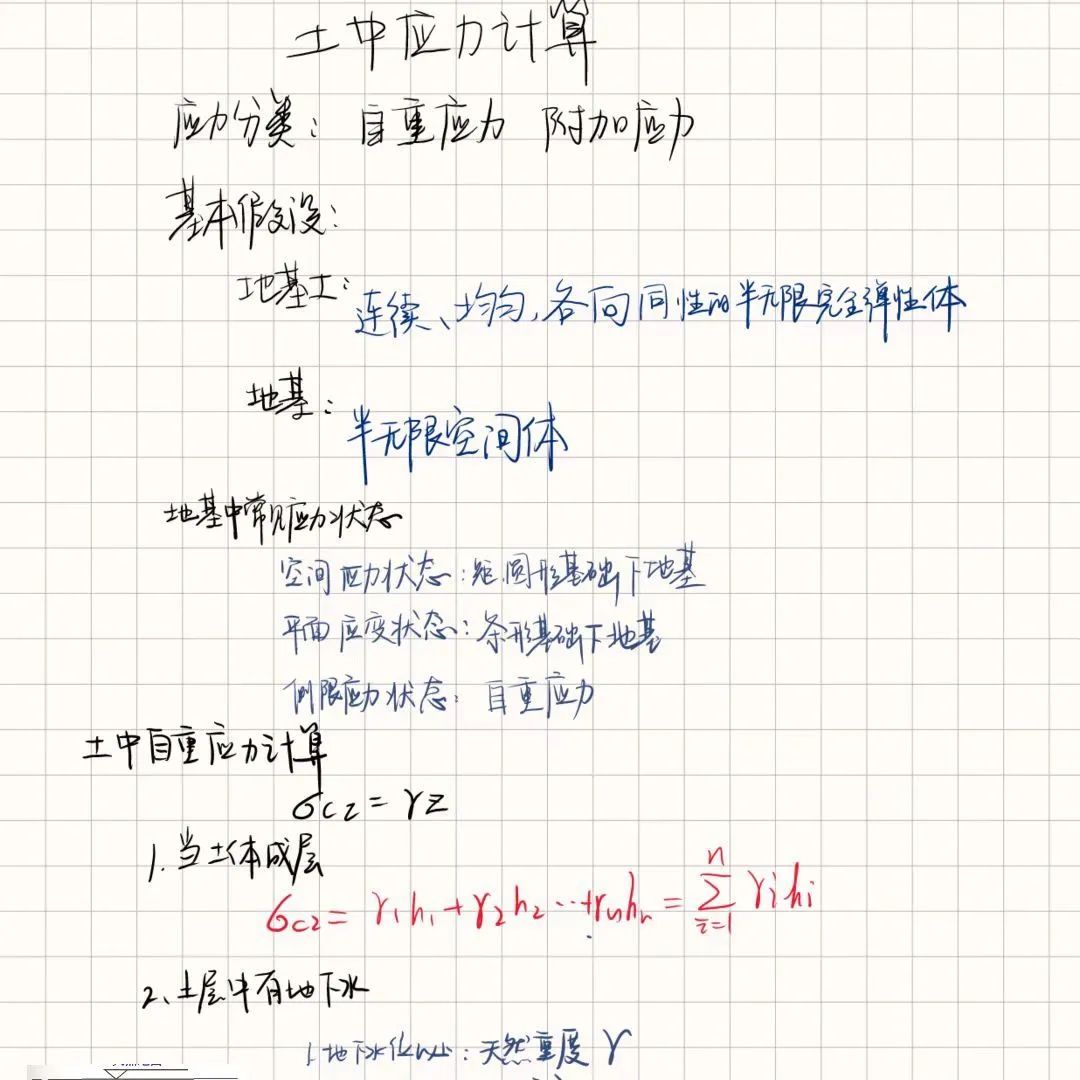 土中应力计算
应力分类: 自重应力 附加应力
基本假设:
地基土: 连续、均匀,各向同性的半无限完全弹性体
地基: 半无限空间体
地基中常见应力状态
空间应力状态:矩.圆形基础下地基
平面应变状态:条形基础下地基
侧限应力状态: 自重应力
土中自重应力计算
σcz = γz
1. 当土体成层
σcz = γ1h1+γ2h2 …+γnhn = ∑ⁿi=1 γihi
2、土层中有地下水
1.地下水位以上: 天然重度 γ